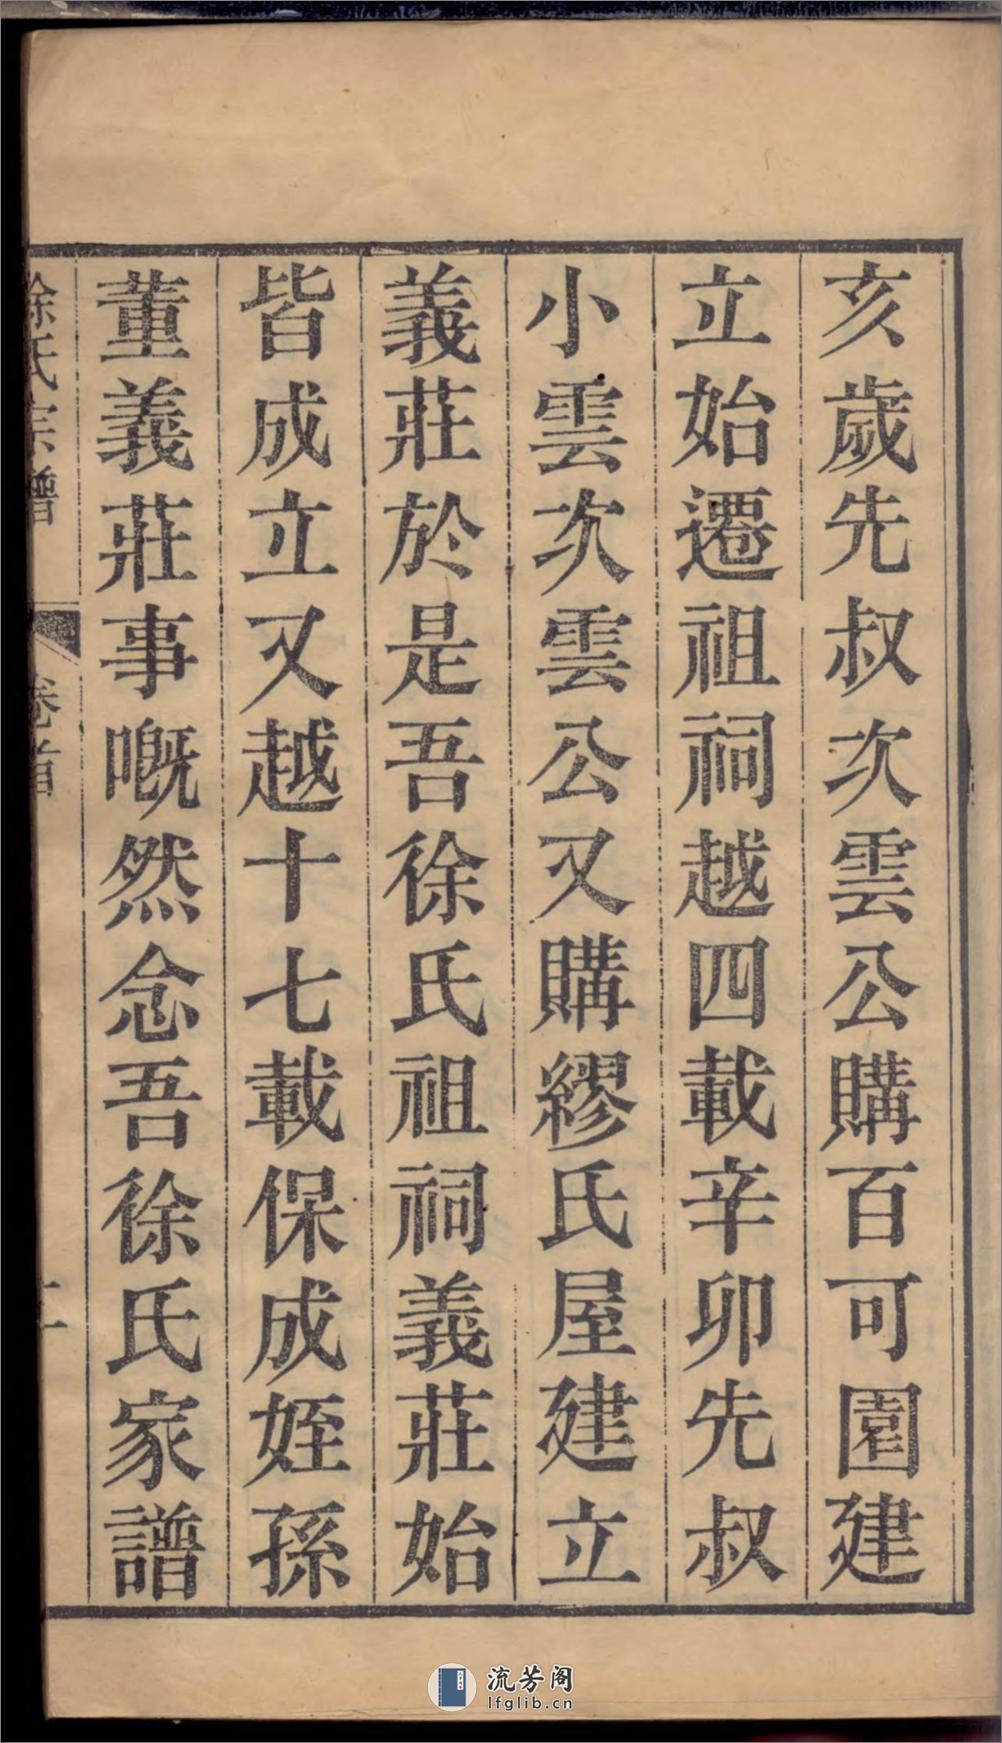 亥歲先叔次雲公購百可園建
立始遷祖祠越四載辛卯先叔
小雲次雲公又購繆氏屋建立
義莊於是吾徐氏祖祠義莊始
皆成立又越十七載保成姪孫
董義莊事嘅然念吾徐氏家譜
徐氏宗譜
卷首
流芳阁
lfglib.cn